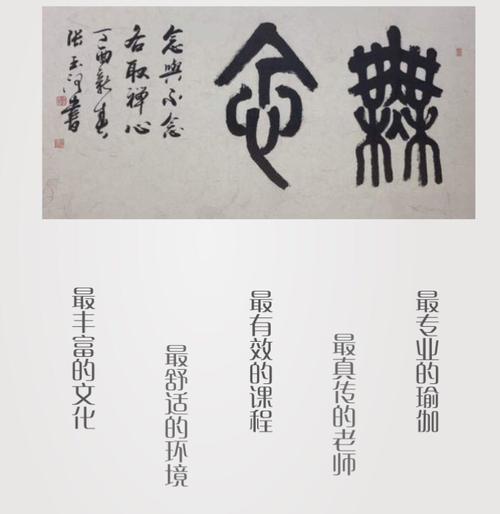 無念
念與不念
各取禪心
丁酉新春
張玉河書
最专业的瑜伽
最真传的老师
最有效的课程
最舒适的环境
最丰富的文化